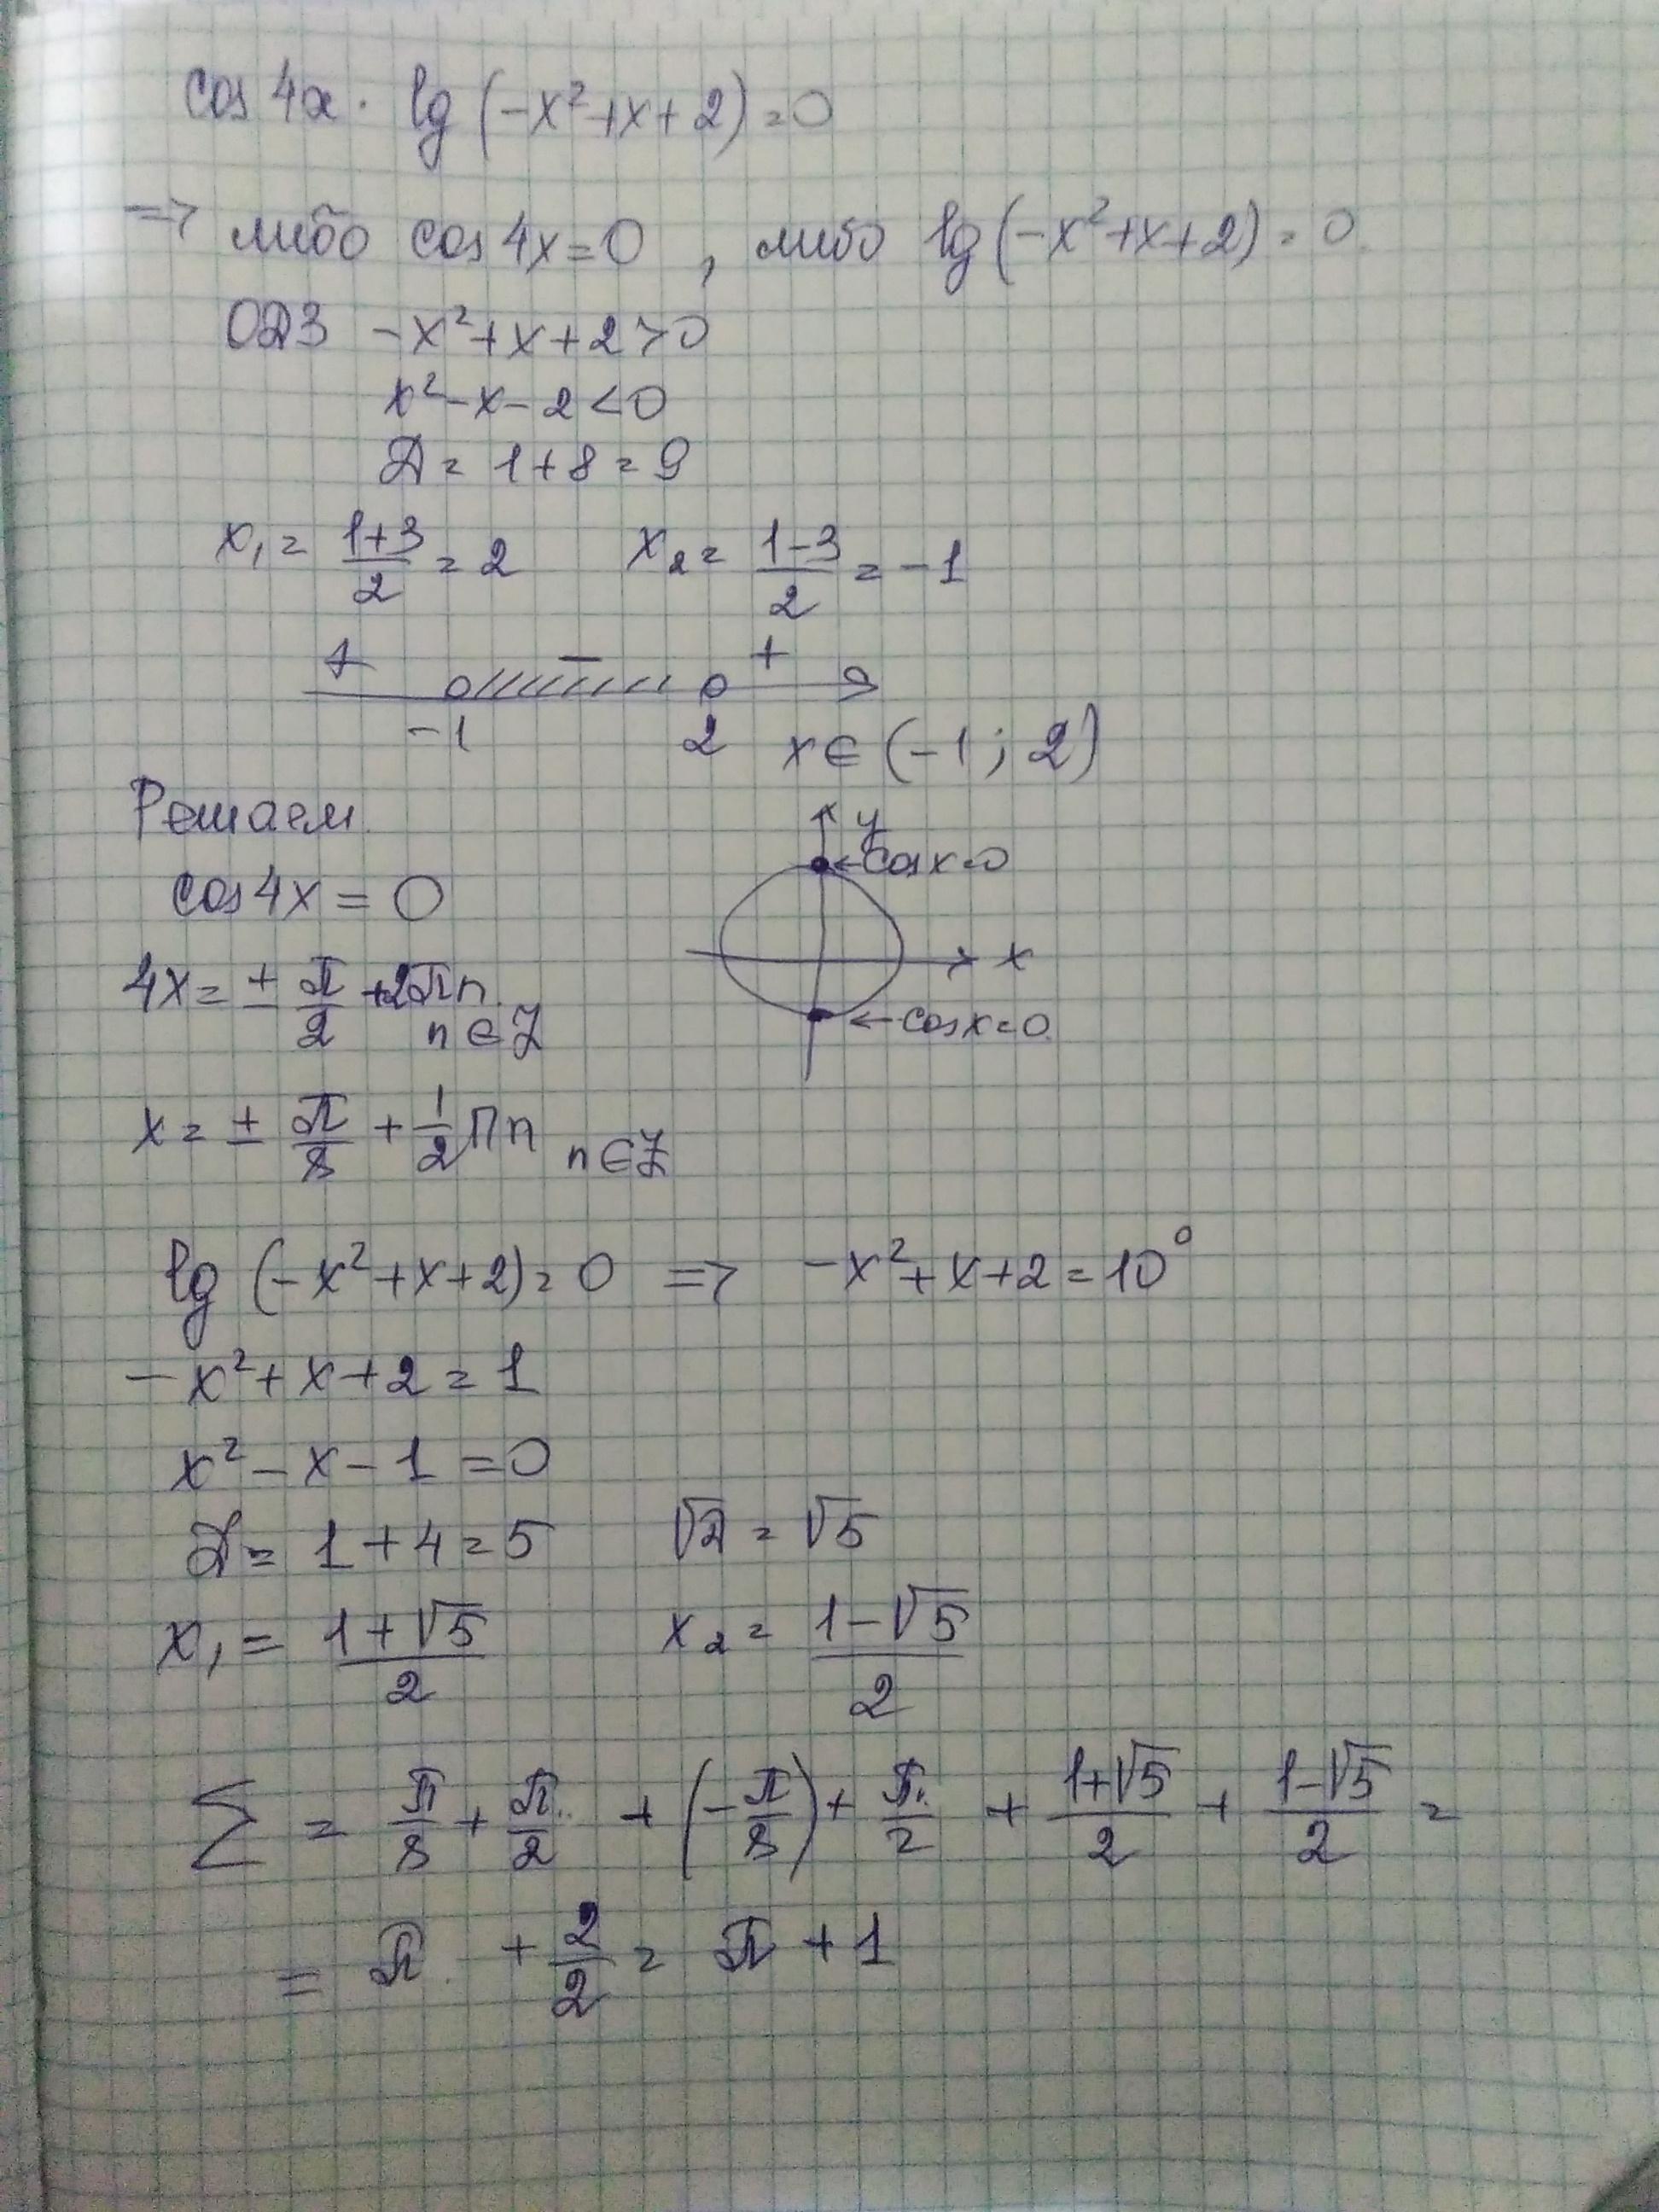 cos 4x · lg (-x²+x+2) = 0
=> либо cos 4x = 0 , либо lg (-x²+x+2) = 0.
ОДЗ -x²+x+2 > 0
x²-x-2 < 0
Д = 1+8 = 9
x₁ = (1+3)/2 = 2 x₂ = (1-3)/2 = -1
+ - +
-1 2 x ∈ (-1; 2)
Решаем
y
cos x = 0
cos 4x = 0
x
4x = ± π/2 + 2πn. n ∈ Z
cos x = 0.
x = ± π/8 + 1/2 πn n ∈ Z
lg (-x²+x+2) = 0 => -x²+x+2 = 10⁰
-x²+x+2 = 1
x²-x-1 = 0
Д = 1+4 = 5 √Д = √5
x₁ = (1+√5)/2 x₂ = (1-√5)/2
∑ = π/8 + π/2 + (-π/8) + π/2 + (1+√5)/2 + (1-√5)/2 =
= π + 2/2 = π + 1